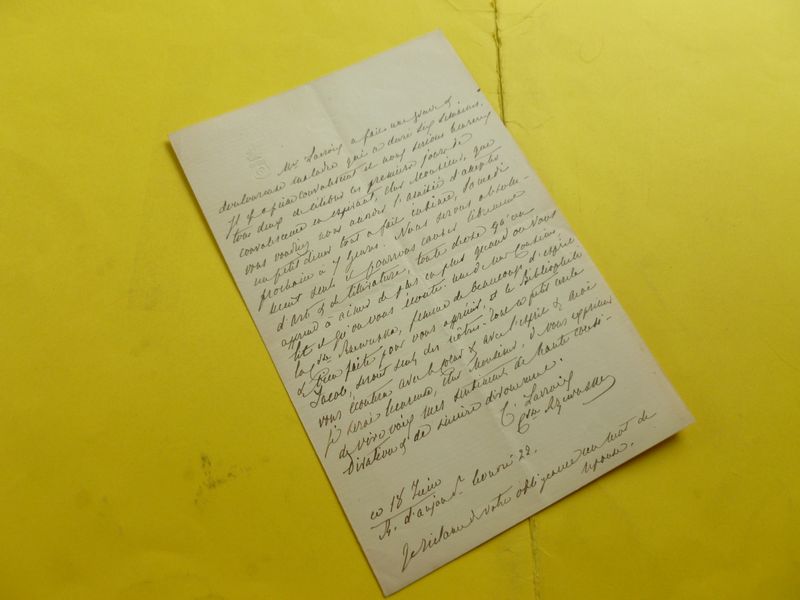 Mr Lacroix a fait une grave &
douloureuse maladie qui a duré six semaines.
Il est à peine convalescent et nous serions heureux
tous deux de célébrer les premiers jours de
convalescence en espérant, cher Monsieur, que
vous voudrez nous accorder l'amitié d'accepter
un petit diner tout à fait intime, Samedi
prochain à 7 heures. Nous serons absolu-
ment seuls et pourrons causer librement
d'art & de littérature, toute chose qu'on
apprend à aimer de plus en plus quand on vous
lit et qu'on vous écoute. Une de mes cousines,
la Ctsse Rzewuska, femme de beaucoup d'esprit
& bien faite pour vous apprécier, et le Bibliophile
Jacob, seront seuls des nôtres. Dans ce petit cercle
vous écoutera avec le cœur & avec l'esprit &
je serai heureuse, cher Monsieur, de vous exprimer
de vive voix mes sentiments de haute consi-
dération & de sincère dévouement.
C. Lacroix
Ctsse Rzewuska
ce 18 Juin
22.
Je réclame de votre obligeance un mot de
réponse.